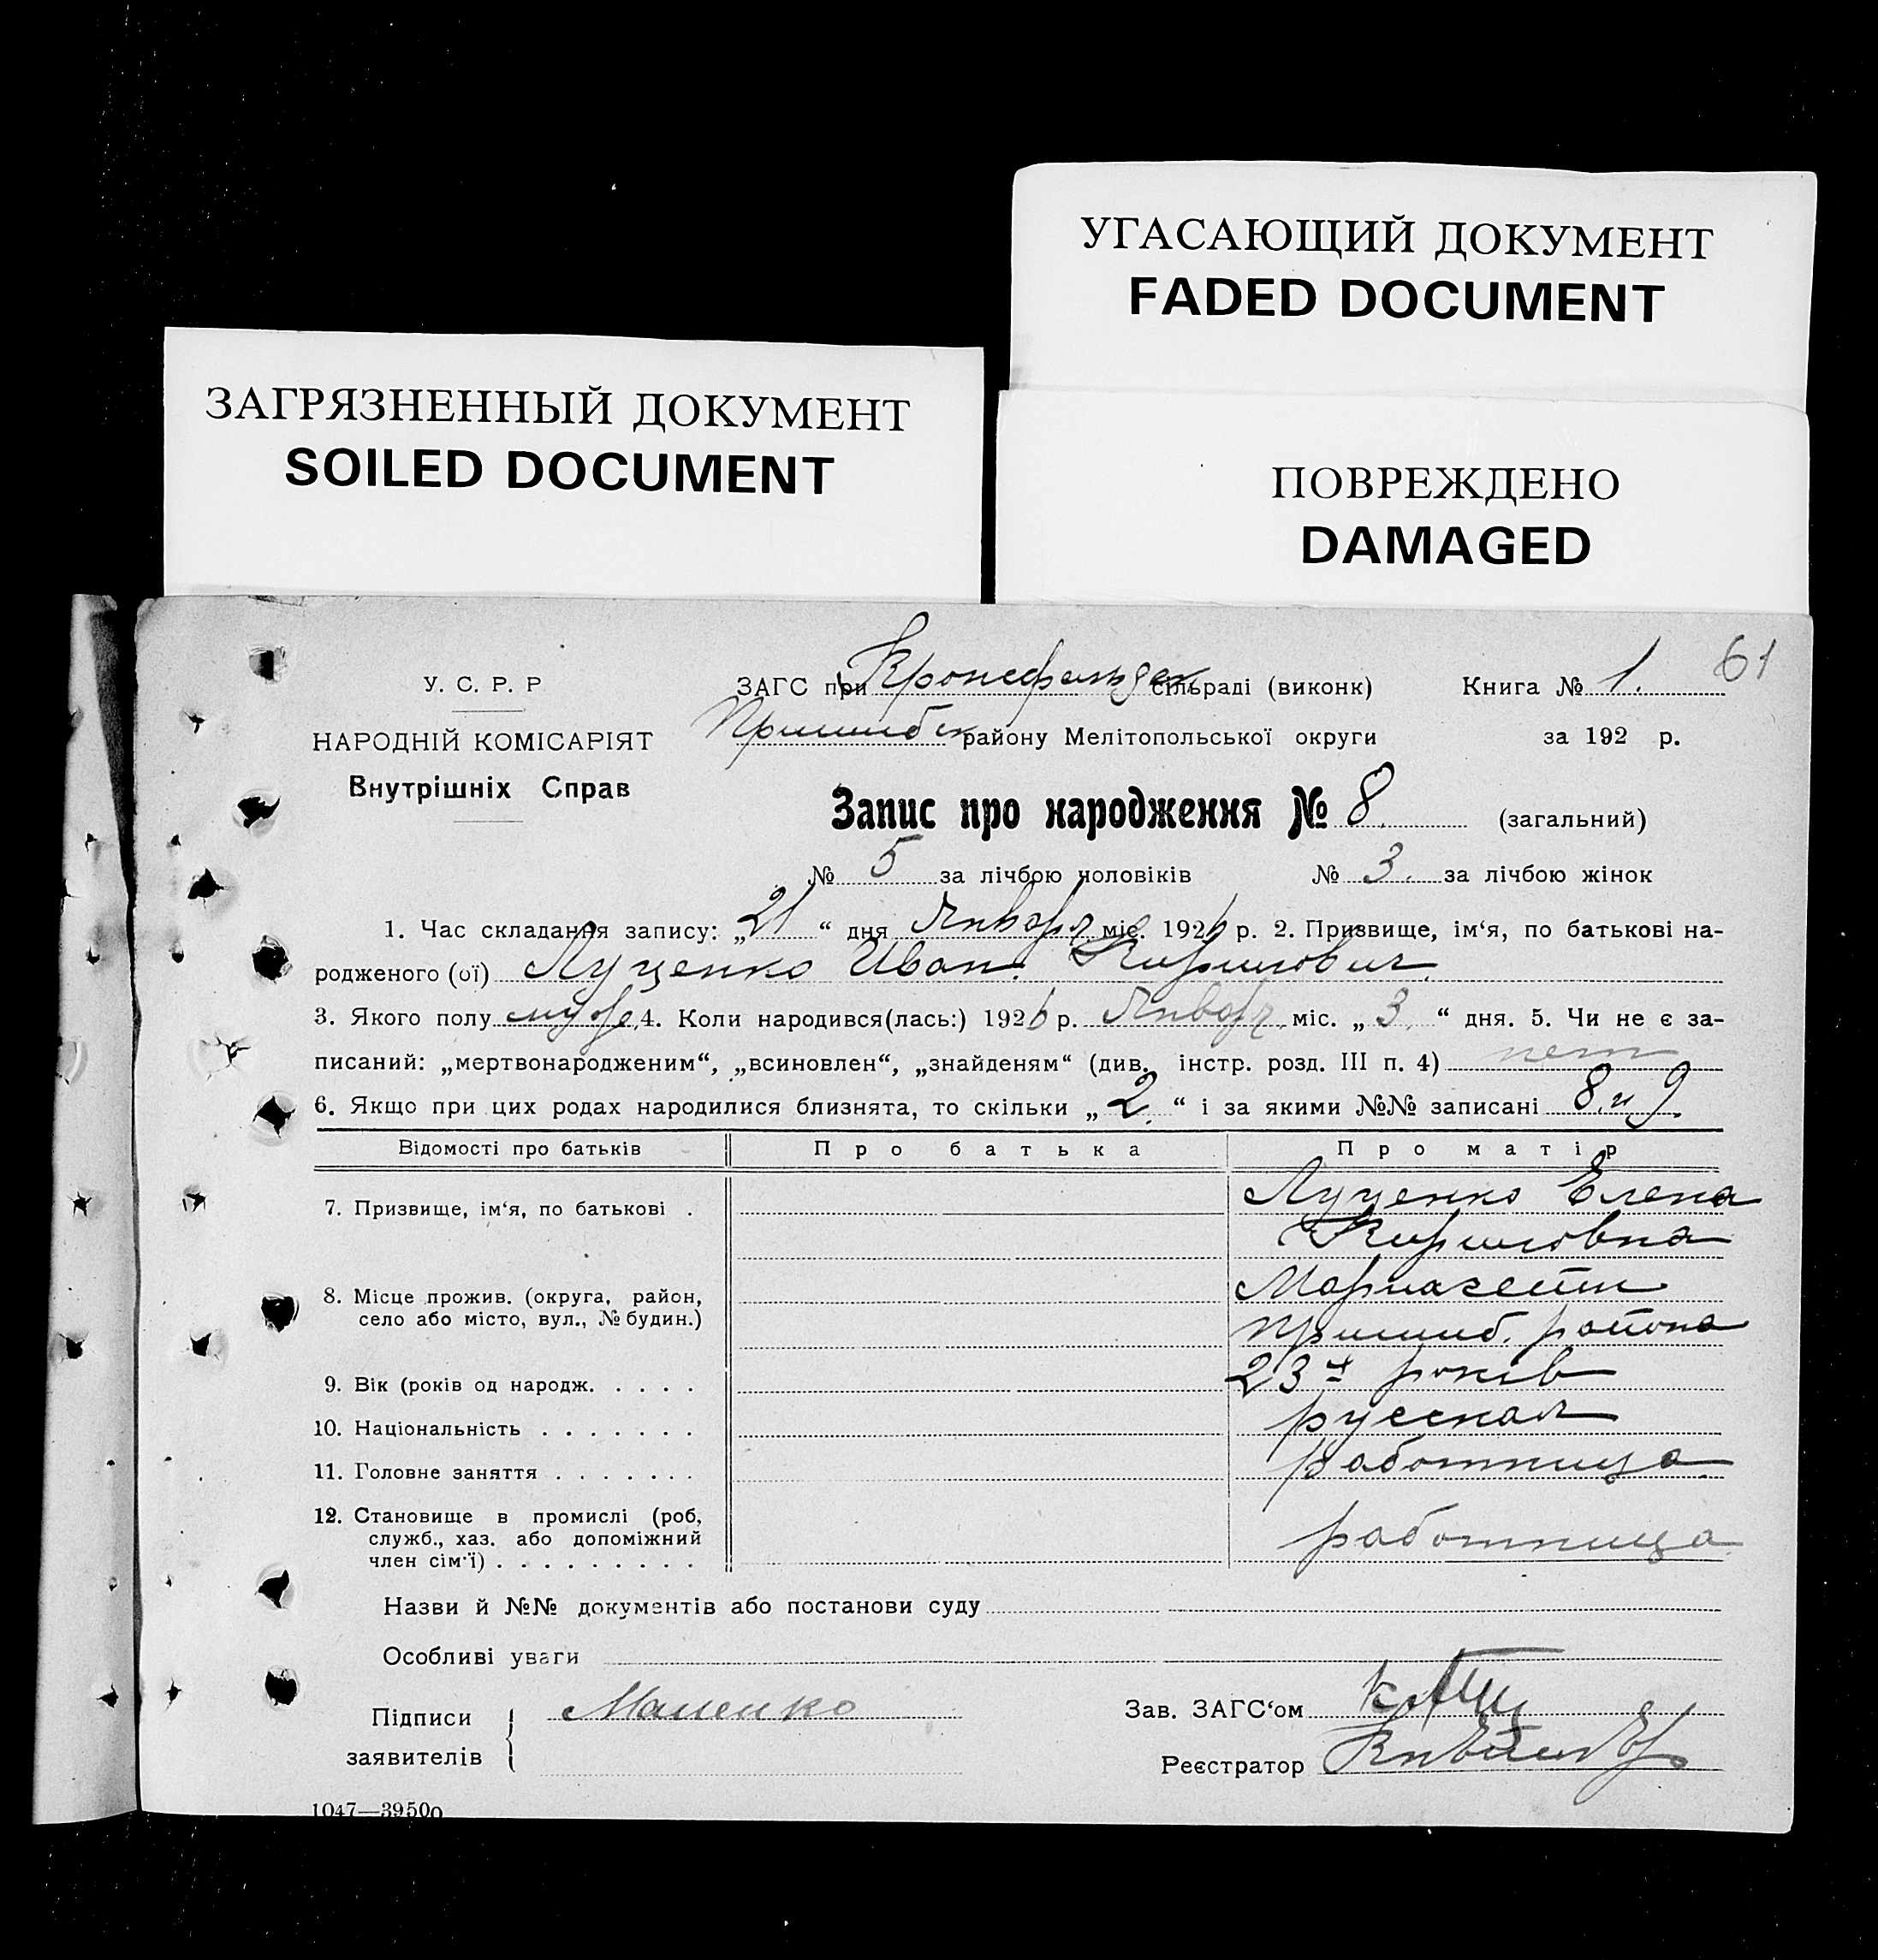 УГАСАЮЩИЙ ДОКУМЕНТ
FADED DOCUMENT
ЗАГРЯЗНЕННЫЙ ДОКУМЕНТ
SOILED DOCUMENT
ПОВРЕЖДЕНО
DAMAGED
61
У. С. Р. Р
НАРОДНІЙ КОМІСАРІЯТ
Внутрішніх Справ
ЗАГС при Кронсфельдск сільраді (виконк) Книга № 1.
Пришибск району Мелітопольської округи за 192 р.
Запис про народження № 8. (загальний)
№ 5 за лічбою чоловіків № 3. за лічбою жінок
1. Час складання запису: „21“ дня Января міс. 1926 р. 2. Призвище, ім‘я, по батькові на-
родженого (ої) Луценко Иван. Кирилович.
3. Якого полу муж. 4. Коли народився(лась:) 1926 р. Январь, міс. „3.“ дня. 5. Чи не є за-
писаний: „мертвонародженим“, „всиновлен“, „знайденям“ (див. інстр. розд. III п. 4) нет
6. Якщо при цих родах народилися близнята, то скільки „2.“ і за якими №№ записані 8. и 9.
Відомості про батьків Про батька Про матір
7. Призвище, ім‘я, по батькові . Луценко Елена
Кириловна
8. Місце прожив. (округа, район, село або місто, вул., № будин.)
Пришиб. района
9. Вік (років од народж. . . . . 23 років
10. Національність . . . . . . . русская
11. Головне заняття . . . . . . . работница
12. Становище в промислі (роб, служб., хаз. або допоміжний член сім‘ї) . . . . . . . . . работница
Назви й №№ документів або постанови суду
Особливі уваги
Підписи заявителів
Зав. ЗАГС‘ом
Реєстратор
1047—39500